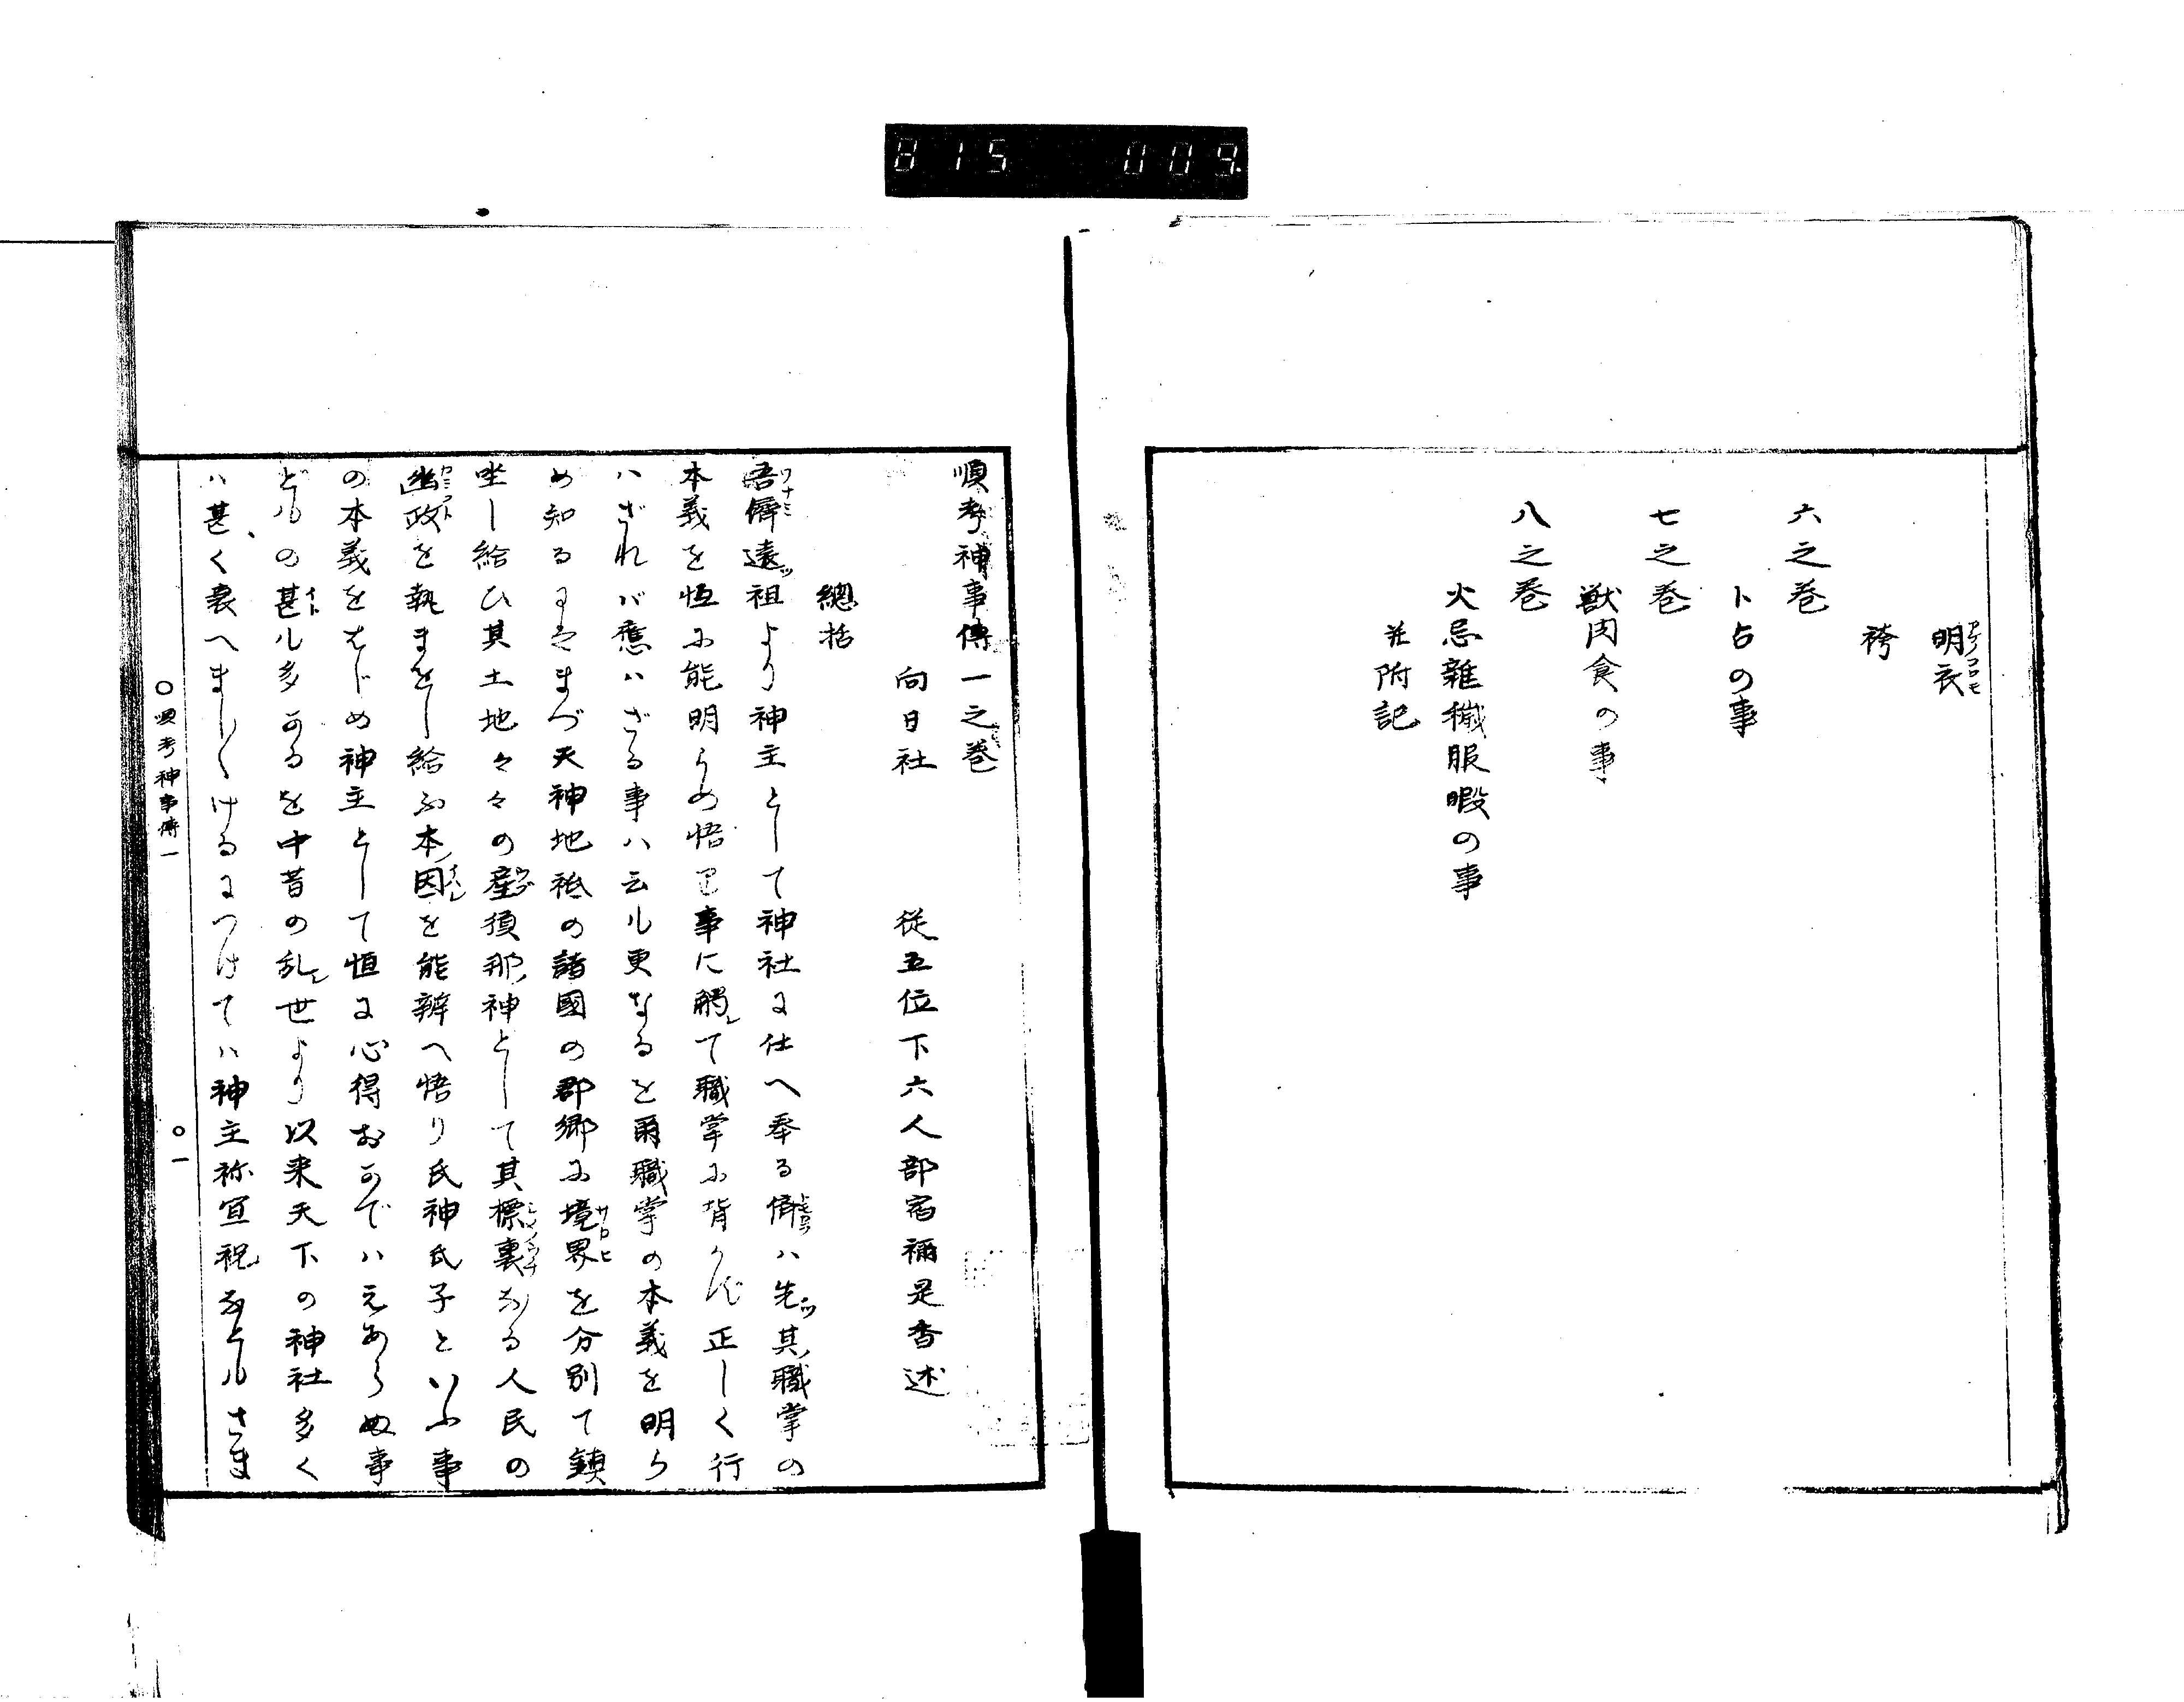 815 009.
明衣
袴
六之巻
卜占の事
七之巻
獣肉食の事
八之巻
火忌雑穢服暇の事
并附記
順考神事傳一之巻
向日社 従五位下六人部宿禰是香述
總括
吾儕遠ッ祖より神主として神社に仕へ奉る儕ハ先ッ其職掌の
本義を恒に能明らめ悟りて事に觸て職掌に背かず正しく行
ハざれバ應ハざる事ハ云ルも更なるを爾職掌の本義を明ら
め知るにはまづ天神地祇の諸國の郡郷に境界を分別て鎮
坐し給ひ其土地々々の産須那神として其標裏なる人民の
幽政を執まをし給ふ本因を能辨へ悟り氏神氏子といふ事
の本義をはじめ神主として恒に心得おかでハえあらぬ事
どもの甚も多かるを中昔の乱世より以来天下の神社多く
ハ甚く衰へましましけるにつけてハ神主祢宜祝なども さま
○順考神事傳一 ○一